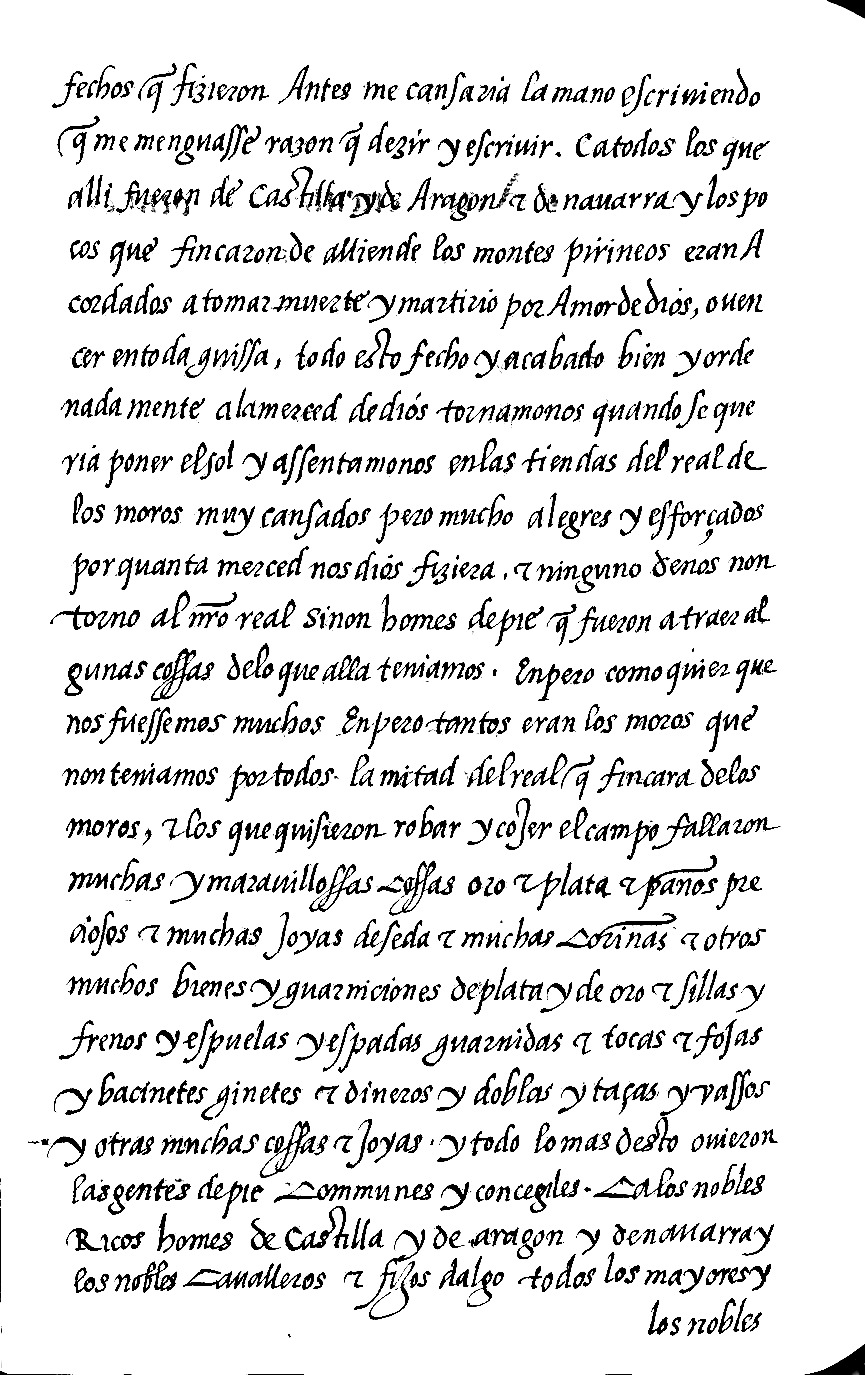 fechos q̃ fizieron Antes me cansaria la mano escriviendo
q̃ me menguasse razon q̃ dezir y escrivir. Ca todos los que
alli fueron de Castilla y de Aragon & de navarra y los po
cos que fincaron de alliende los montes pirineos eran A
cordados a tomar muerte y martirio por Amor de diós, o ven
cer en toda guissa, todo esto fecho y acabado bien y orde
nada mente a la merced de diós tornamonos quando se que
riá poner el sol y assentamonos en las tiendas del real de
los moros muy cansados pero mucho alegres y esforçados
por quanta merced nos diós fiziera. & ninguno de nos non
torno al nr̃o real sinon homes de pie q̃ fueron a traer al
gunas cossas de lo que alla teniamos. Enpero como quier que
nos fuessemos muchos Enpero tantos eran los moros que
non teniamos por todos la mitad del real q̃ fincara de los
moros, & los que quisieron robar y cojer el campo fallaron
muchas y maravillossas cossas oro & plata & pan̄os pre
ciosos & muchas Joyas de seda & muchas corin̄as & otros
muchos bienes y guarniciones de plata y de oro & sillas y
frenos y espuelas y espadas guarnidas & tocas & fojas
y bacinetes ginetes & dineros y doblas y taças y vassos
y otras muchas cossas & Joyas. y todo lo mas desto ovieron
las gentes de pie communes y concegiles. Ca los nobles
Ricos homes de Castilla y de aragon y de navarra y
los nobles cavalleros & fijos dalgo todos los mayores y
los nobles